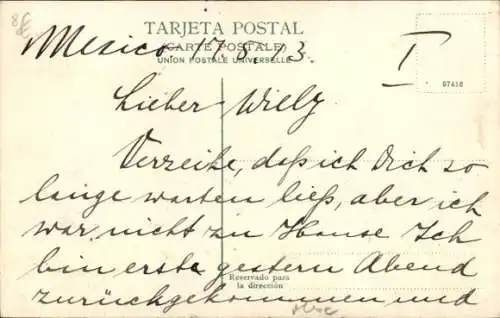 TARJETA POSTAL
(CARTE POSTALE)
UNION POSTALE UNIVERSELLE
Mexico 17. 8. 3.
I
07416
Lieber Willy
Verzeihe, daß ich Dich so
lange warten ließ, aber ich
war nicht zu Hause Ich
bin erst gestern Abend
Reservado para
la dirección
zurückgekommen und